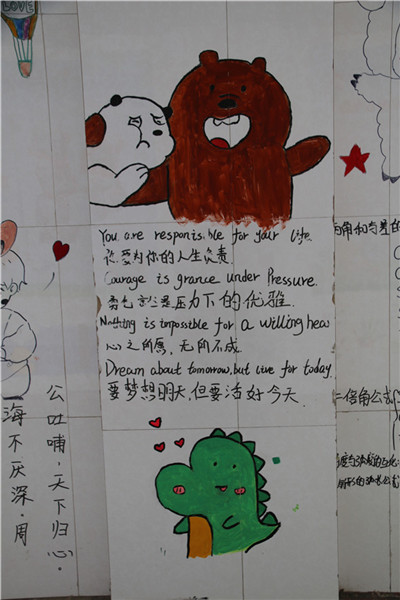 You are responisible for your life.
你要为你的人生负责
Courage is grance under Pressure.
勇气就是压力下的优雅.
Nothing is impossible for a willing hear
心之所愿，无所不成.
Dream about tomorrow, but live for today
要梦想明天,但要活好今天.
海不厌深.周
公吐哺,天下归心.
两角和与差的
二倍角公式